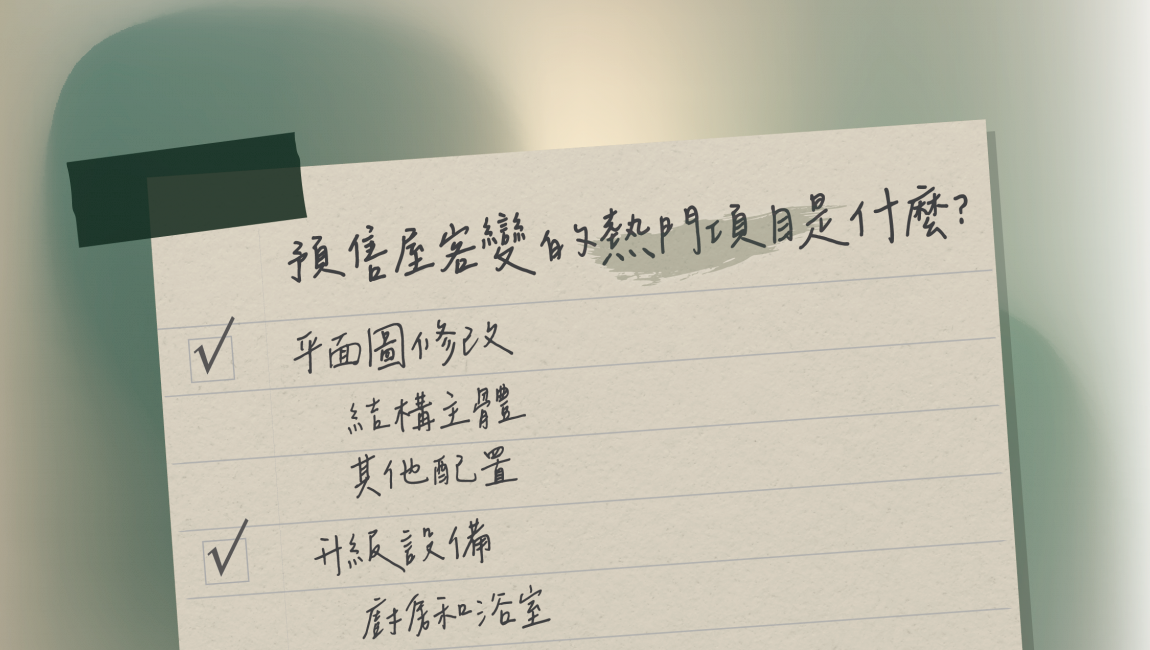 預售屋客變的熱門項目是什麼?
平面圖修改
結構主體
其他配置
升級設備
廚房和浴室